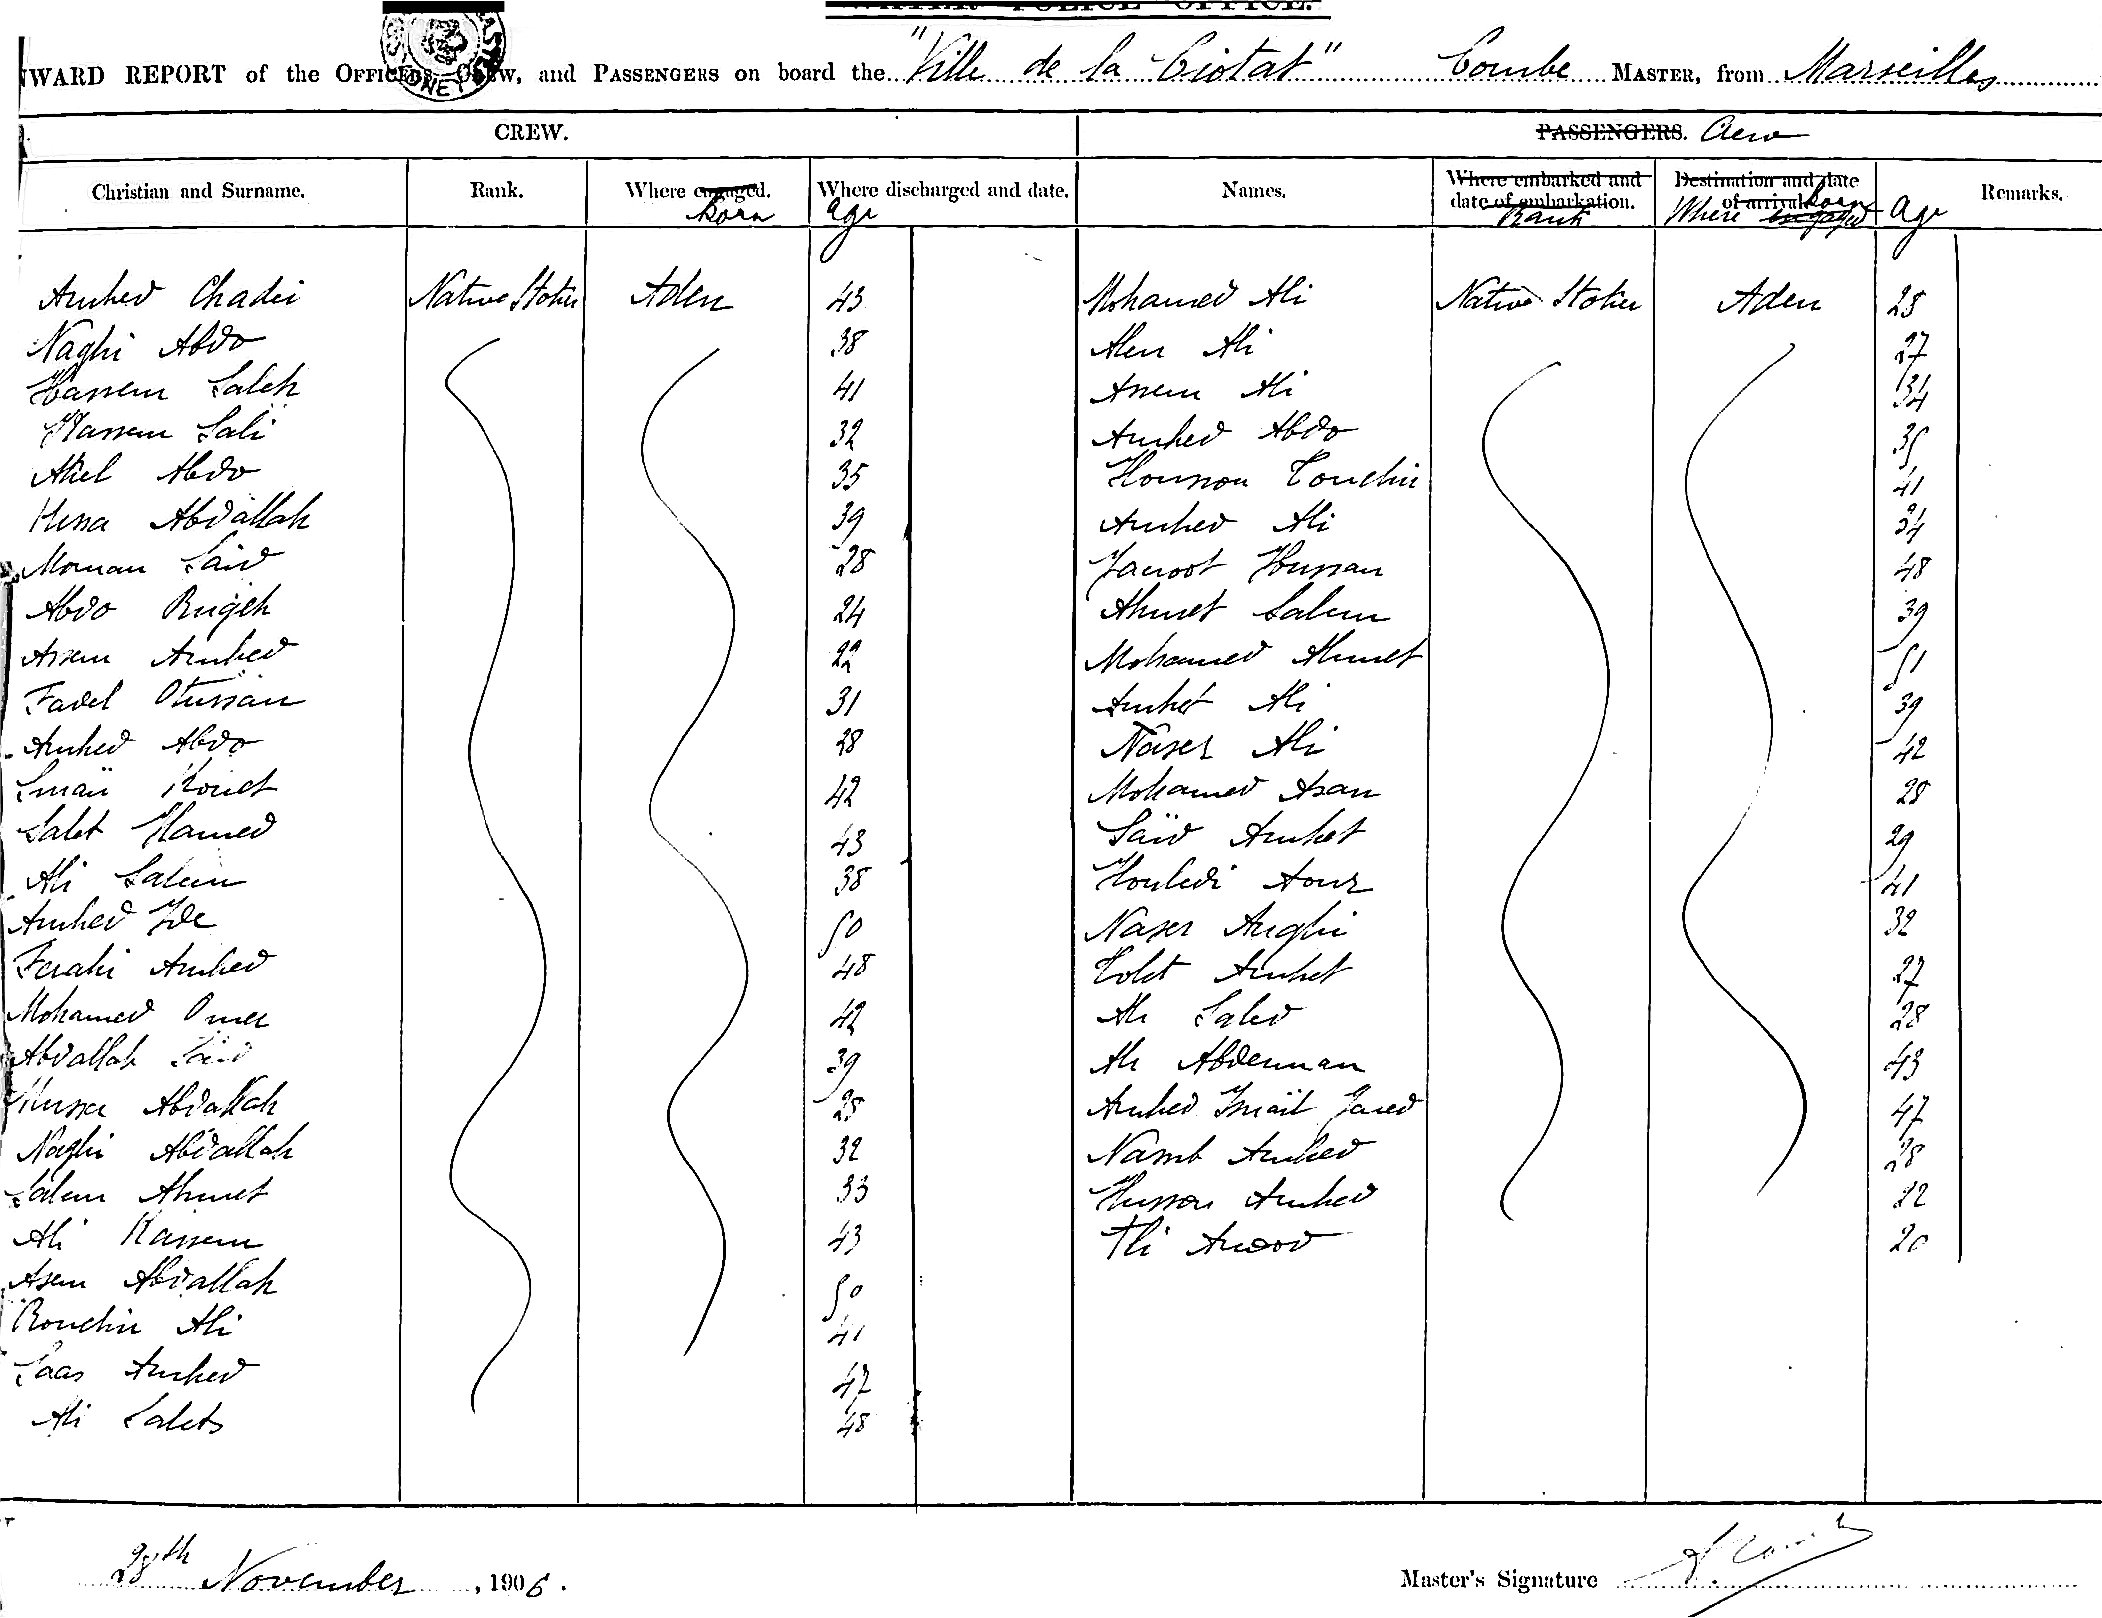 WATER POLICE OFFICE.
INWARD REPORT of the OFFICERS, CREW, and PASSENGERS on board the "Ville de la Ciotat" Combe MASTER, from Marseilles
CREW. PASSENGERS. Crew
Christian and Surname. Rank. Where engaged. born Where discharged and date. age Names. Where embarked and date of embarkation. Rank Destination and date of arrival. Where engaged born Age Remarks.
Amhed Chadei Native Stoker Aden 43 Mohamed Ali Native Stoker Aden 28
Naghi Abdo 38 Alen Ali 27
Hassem Saleh 41 Assem Ali 34
Hassem Sali 32 Amhed Abdo 35
Akel Abdo 35 Housson Couchin 41
Hussa Abdallah 39 Amhed Ali 34
Mornan Said 28 Jacoot Hussan 48
Abdo Rugeh 24 Ahmet Salem 39
Assem Amhed 22 Mohamed Ahmet 51
Fadel Otussan 31 Amhet Ali 39
Amhed Abdo 28 Naser Ali 42
Smaïi Kouet 42 Mohamed Asan 28
Salet Hamed 43 Saïd Amhet 29
Ali Salem 38 Houledi Aour 41
Amhed Ide 50 Naser Anghi 32
Ferahi Amhed 48 Colet Amhet 27
Mohamed Omer 42 Ali Saled 28
Abdallah Said 39 Ali Abderman 43
Hussa Abdallah 25 Amhed Ismaïl Jaued 47
Naghi Abdallah 32 Namb Amhed 28
Salem Ahmet 33 Husson Amhed 22
Ali Kassem 43 Ali Awood 20
Asem Abdallah 50
Rouchin Ali 41
Saas Amhed 47
Ali Salets 48
28th November, 1906.
Master's Signature